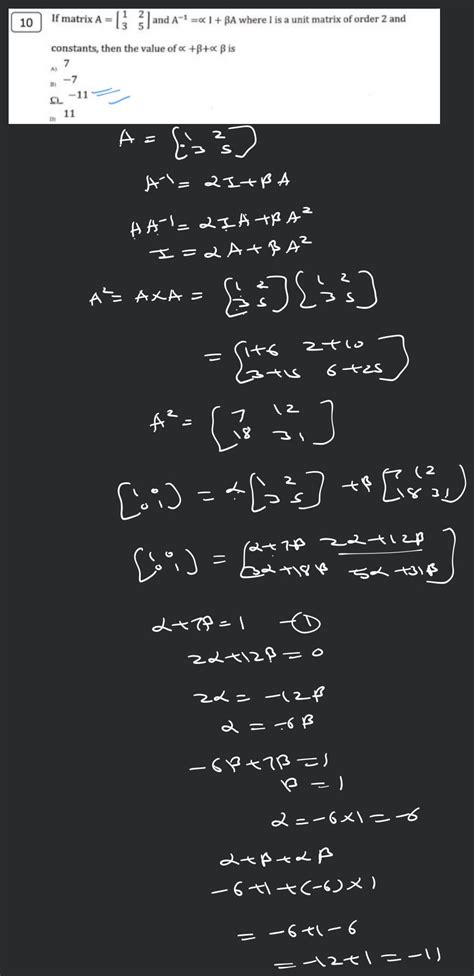 10 If matrix A = [1 2 3 5] and A⁻¹ =∝ I + βA where I is a unit matrix of order 2 and
constants, then the value of ∝ +β+∝ β is
A) 7
B) −7
C) −11
D) 11
A = [1 2 3 5]
A⁻¹ = αI + βA
AA⁻¹ = αIA + βA²
I = αA + βA²
A² = A×A = [1 2 3 5] [1 2 3 5]
= [1+6 2+10 3+15 6+25]
A² = [7 12 18 31]
[1 0 0 1] = α[1 2 3 5] + β[7 12 18 31]
[1 0 0 1] = [α+7β 2α+12β 3α+18β 5α+31β]
α+7β=1 —①
2α+12β=0
2α = −12β
α = −6β
−6β+7β=1
β = 1
α=−6×1=−6
α+β+αβ
−6+1+(−6)×1
= −6+1−6
= −12+1=−11